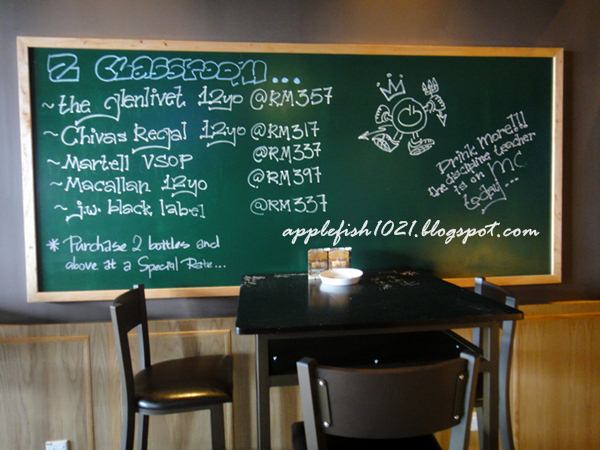 2 Classroom...
~ the glenlivet 12yo @RM357
~ Chivas Regal 12yo @RM317
~ Martell VSOP @RM337
~ Macallan 12yo @RM397
~ j.w. black label @RM337
* Purchase 2 bottles and
above at a Special Rate...
Drink More!!!
the discipline teacher
is on MC
today...
applefish1021.blogspot.com